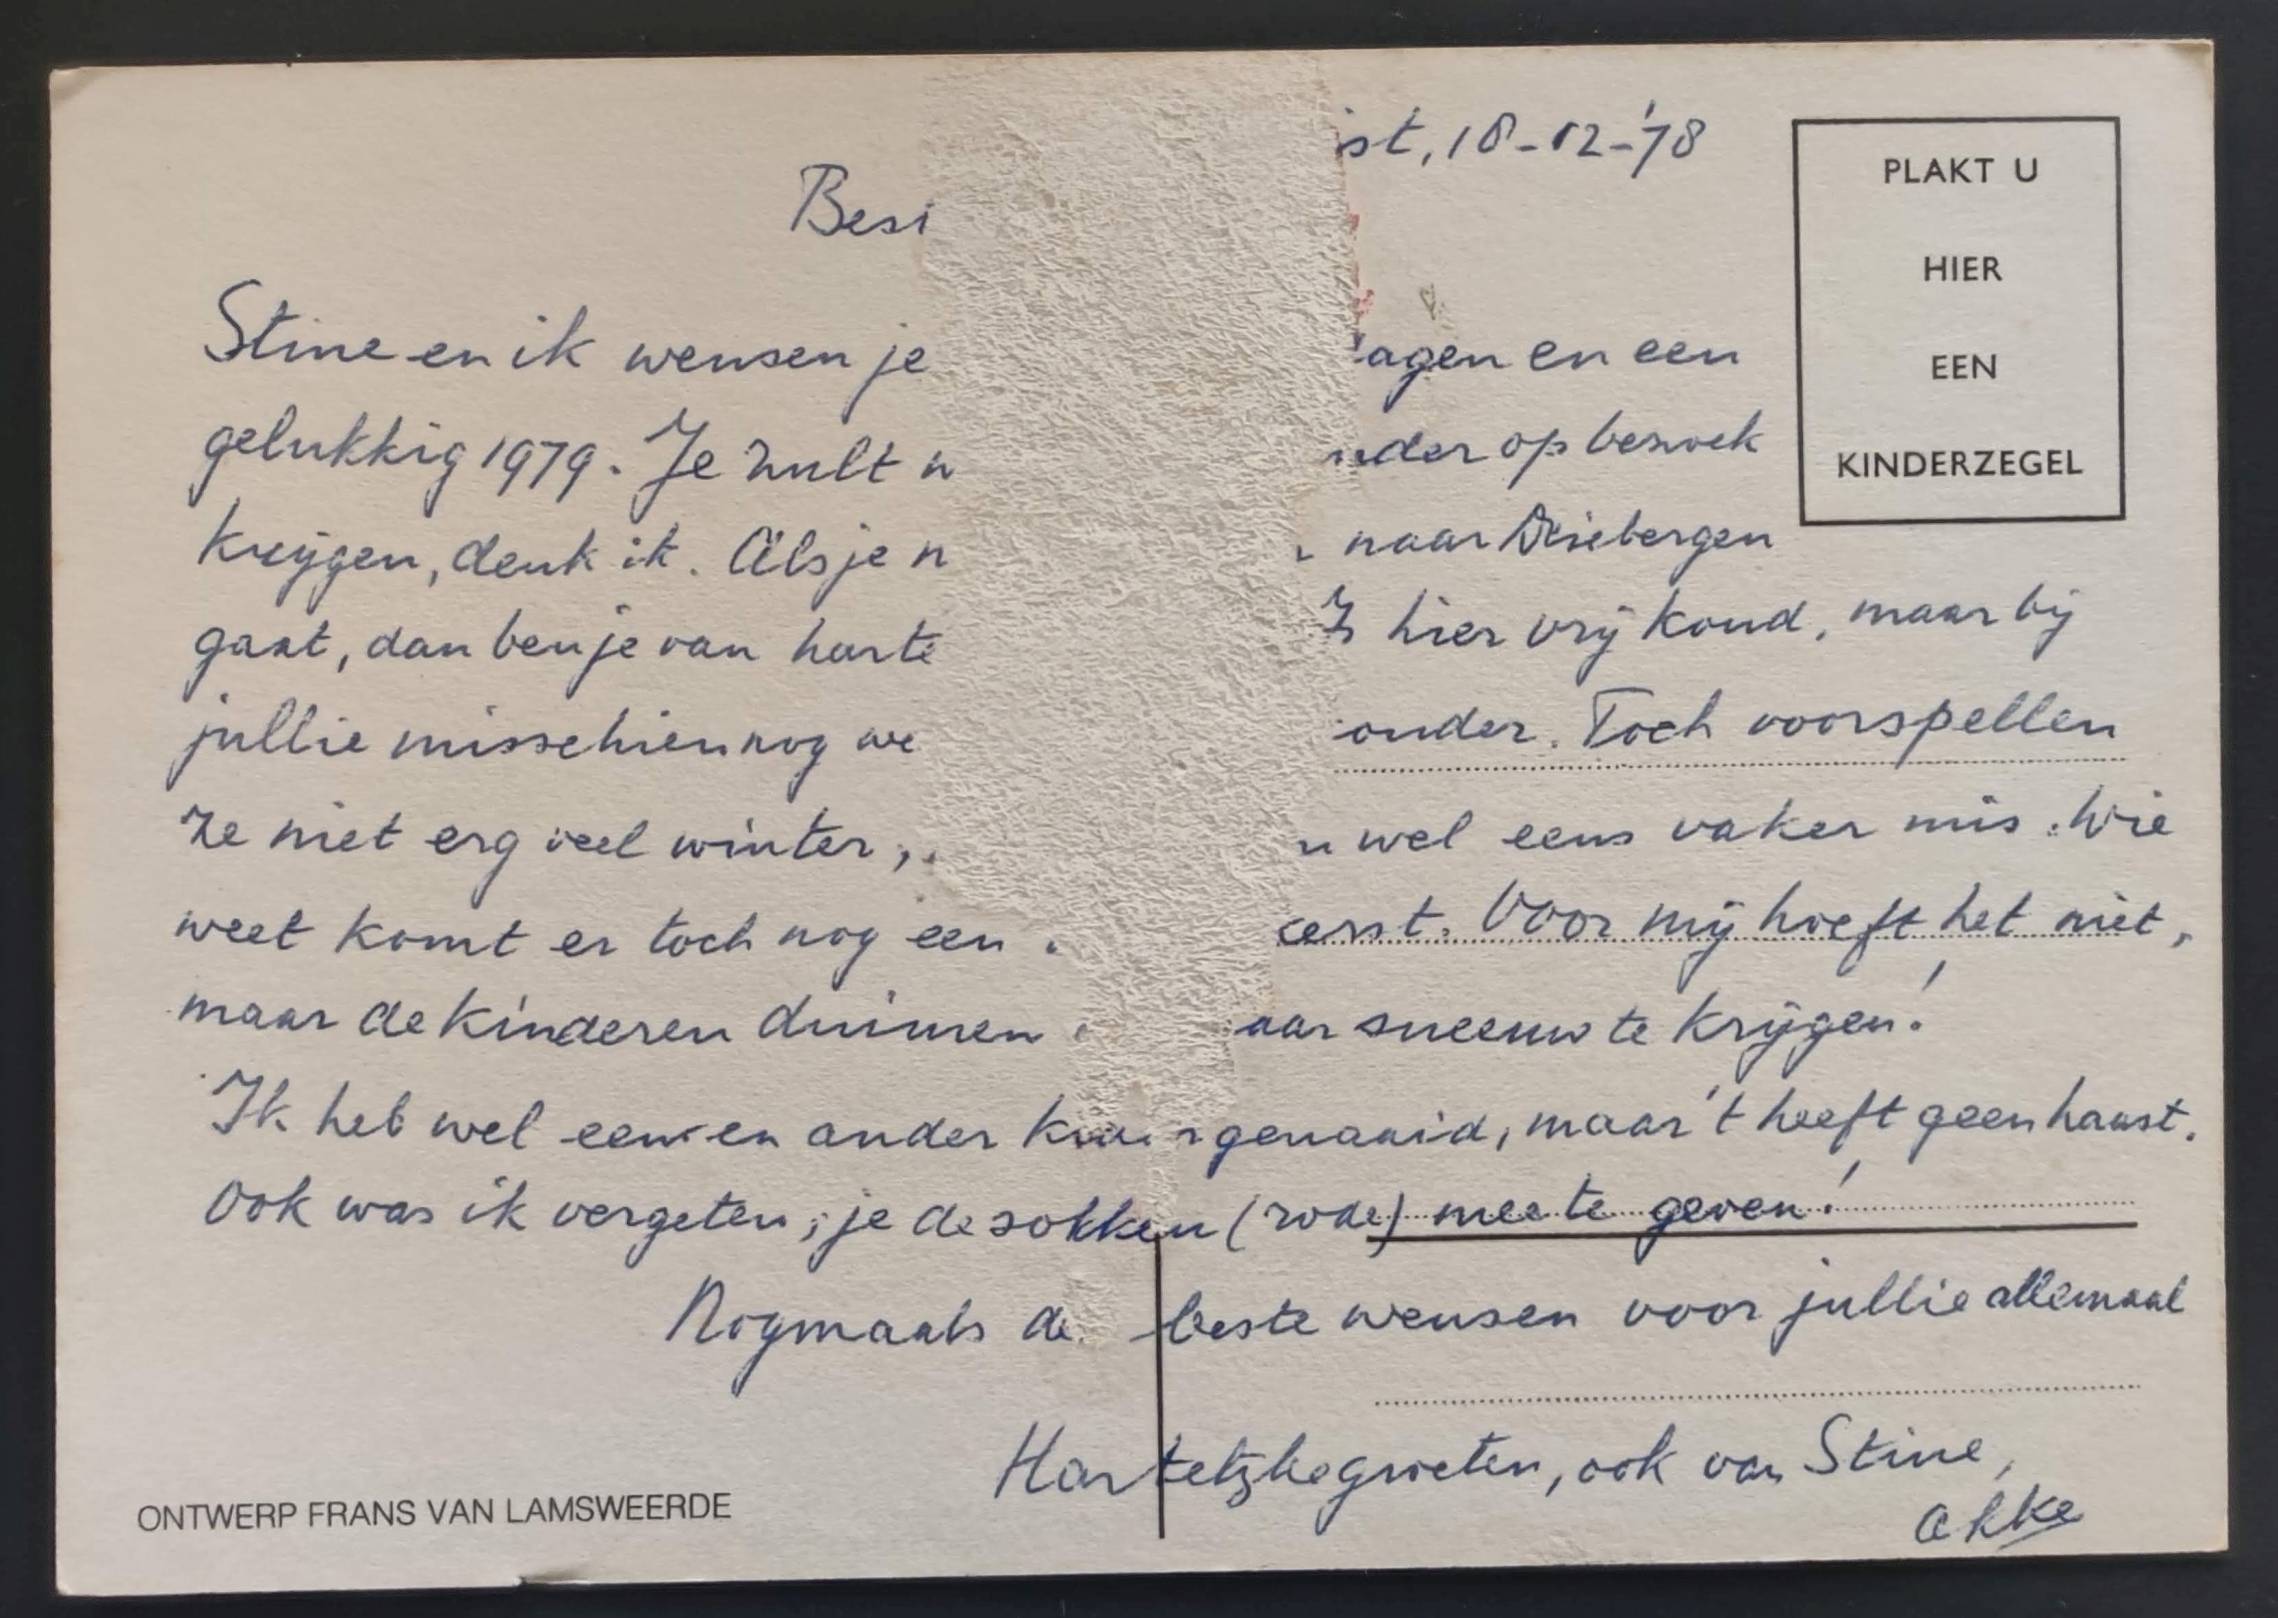 st, 18-12-'78
PLAKT U
HIER
EEN
KINDERZEGEL
Stine en ik wensen je agen en een
gelukkig 1979. Je zult op bezoek
krijgen, denk ik. Als je naar Driebergen
gaat, dan ben je van harte hier vrij koud, maar bij
jullie misschien nog onder. Toch voorspellen
ze niet erg veel winter, wel eens vaker mis. Wie
weet komt er toch nog een Voor mij hoeft het niet,
maar de kinderen duimen sneeuw te krijgen!
Ik heb wel een ander genaaid, maar 't heeft geen haast.
Ook was ik vergeten, je de sokken (rode) mee te geven!
Nogmaals de beste wensen voor jullie allemaal
Hartelijke groeten, ook van Stine,
Akke
ONTWERP FRANS VAN LAMSWEERDE